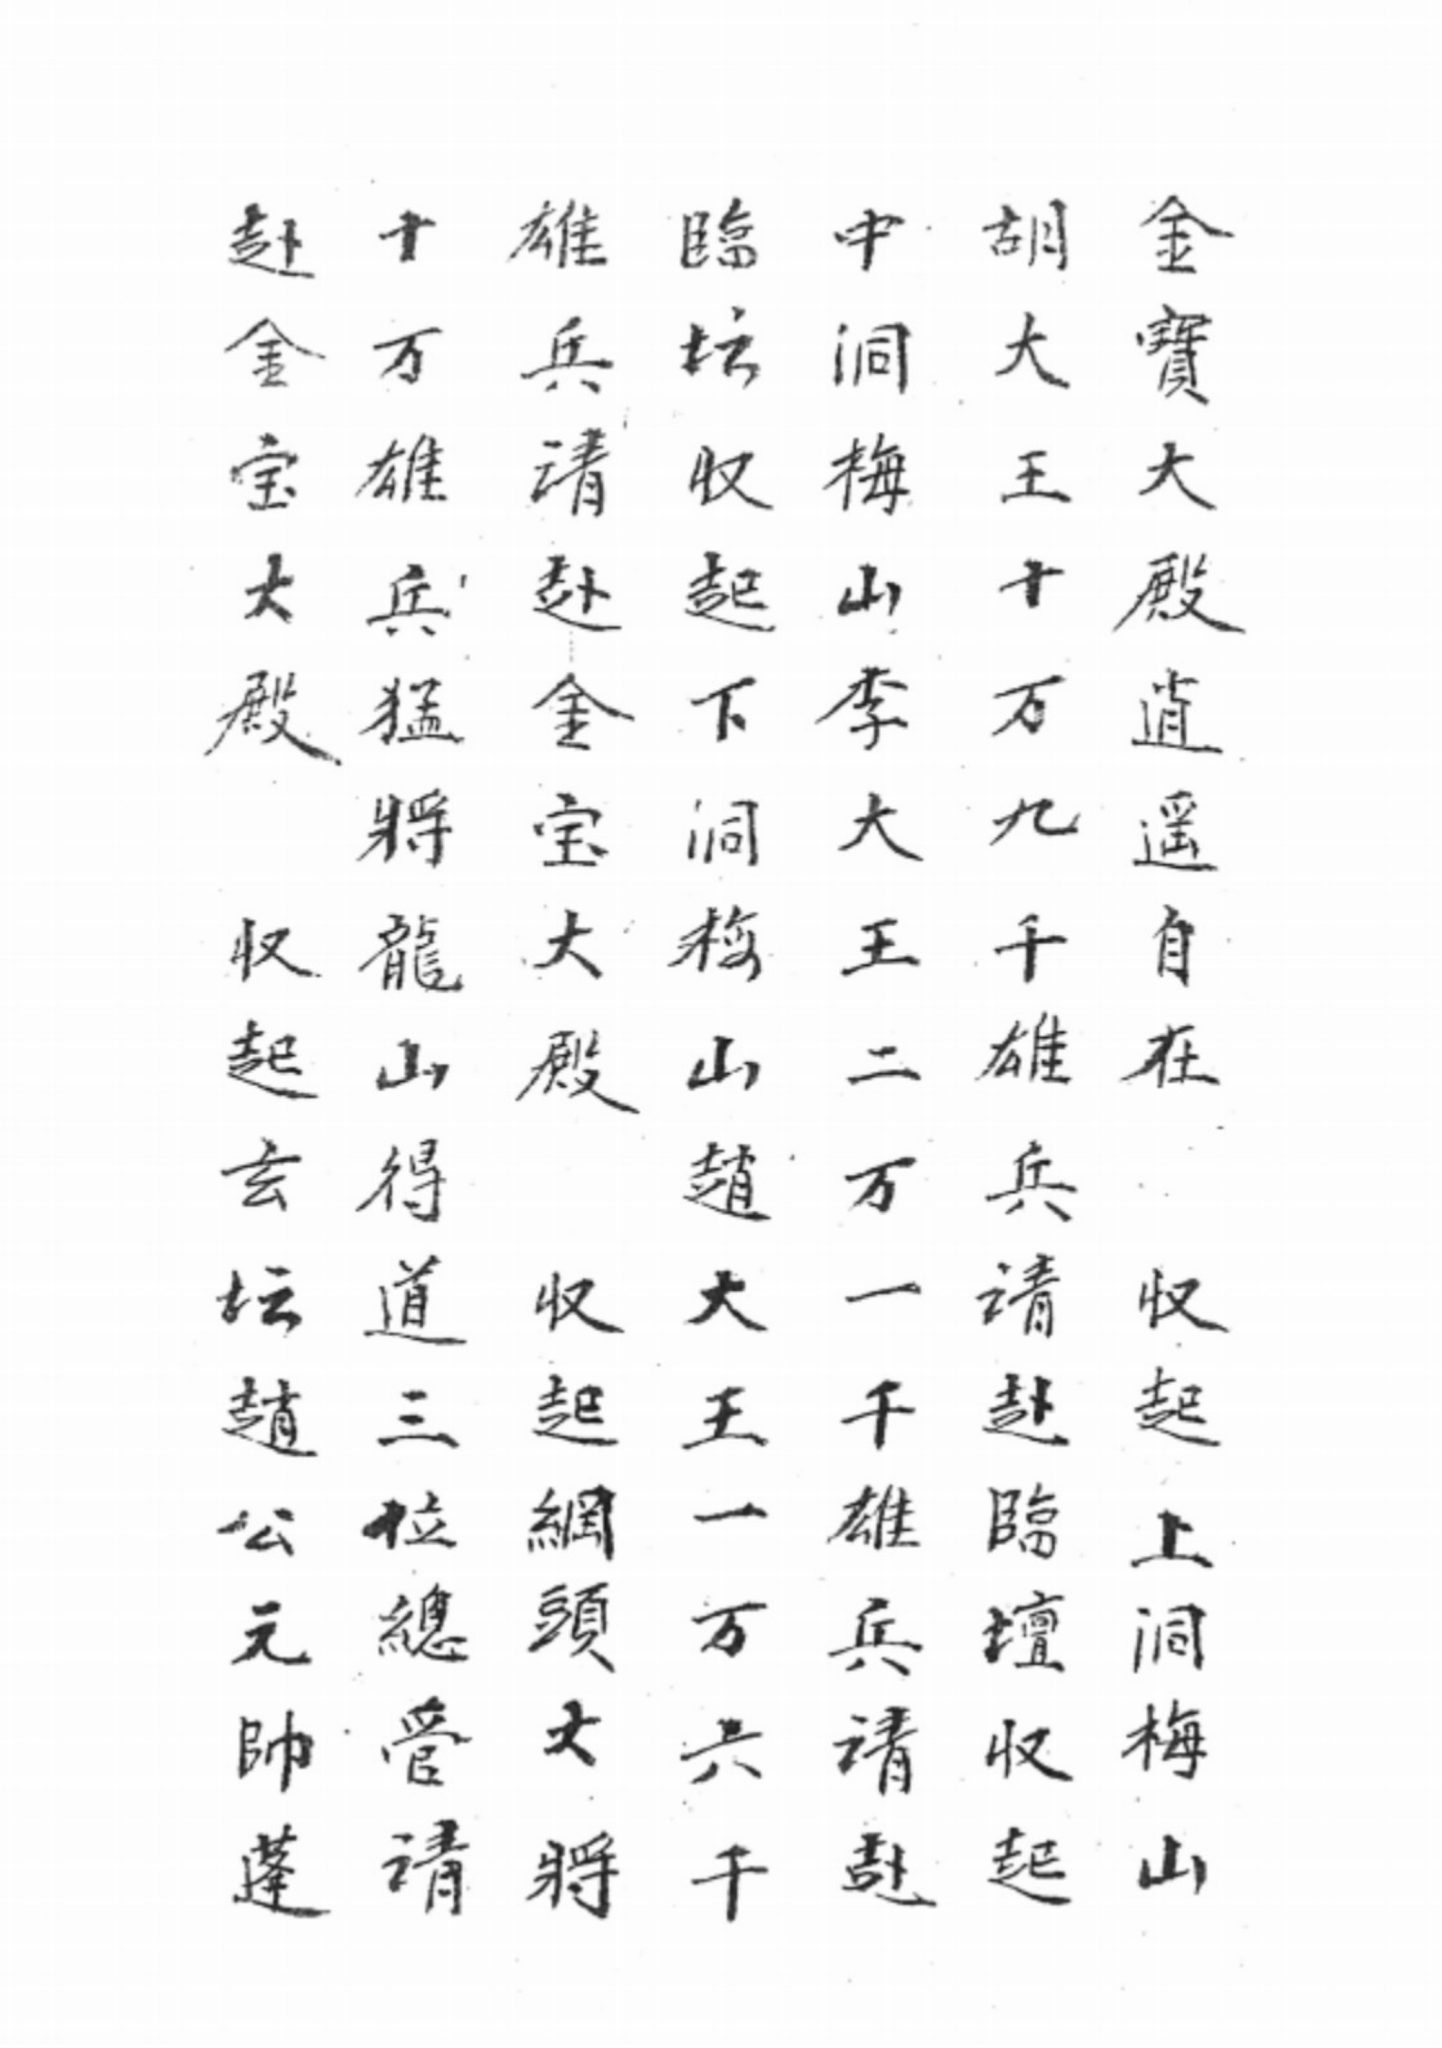 金寶大殿逍遥自在　收起上洞梅山
胡大王十万九千雄兵請赴臨壇收起
中洞梅山李大王二万一千雄兵請赴
臨坛收起下洞梅山趙大王一万六千
雄兵請赴金宝大殿　收起綱頭大將
十万雄兵猛將龍山得道三位總管請
赴金宝大殿　收起玄坛趙公元帥蓬